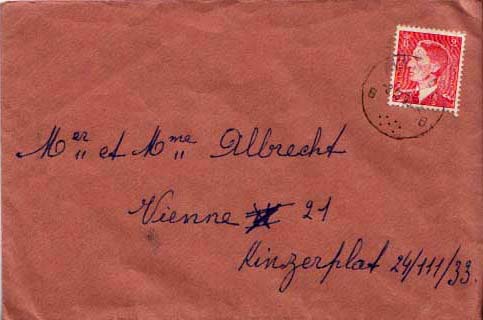 Mer et Mme Albrecht
Vienne 21
Kinzerplat 24/111/33.